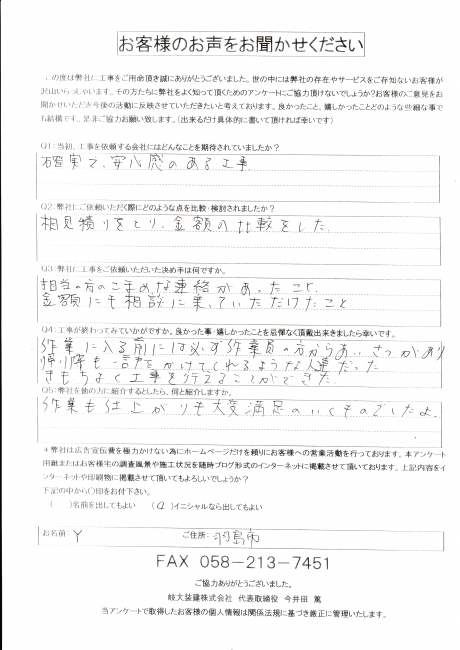 お客様のお声をお聞かせください
この度は弊社に工事をご用命頂き誠にありがとうございました。世の中には弊社の存在やサービスをご存知ないお客様が
沢山いらっしゃいます。その方たちに弊社をよく知って頂くためのアンケートにご協力頂けないでしょうか?お客様のご意見をお
聞かせいただき今後の活動に反映させていただきたいと考えております。良かったこと、嬉しかったことどのような些細な事で
も結構です。是非ご協力お願い致します。(出来るだけ具体的に書いて頂ければ幸いです)
Q1:当初、工事を依頼する会社にはどんなことを期待されていましたか?
確実で、安心感のある工事
Q2:弊社にご依頼いただく際にどのような点を比較・検討されましたか?
相見積りをとり、金額の比較をした。
Q3:弊社に工事をご依頼いただいた決め手は何ですか。
担当の方のこまめな連絡があったこと、
金額にも相談に乗っていただけたこと
Q4:工事が終わってみていかがですか。良かった事・嬉しかったことを忌憚なく頂戴出来きましたら幸いです。
作業に入る前には必ず作業員の方からあいさつがあり
帰り際も一言声をかけてくれるような人達だった
きもちよく工事を行えることができた。
Q5:弊社を他の方に紹介するとしたら、何と紹介しますか。
作業も仕上がりも大変満足のいくものでしたよ。
*弊社は広告宣伝費を極力かけない為にホームページだけを頼りにお客様への営業活動を行っております。本アンケート
用紙またはお客様宅の調査風景や施工状況を随時ブログ形式のインターネットに掲載させて頂いております。上記内容をイ
ンターネットや印刷物に掲載させて頂いてもよろしいでしょうか?
下記の中から〇印をお付下さい。
( )名前を出してもよい (〇)イニシャルなら出してもよい
お名前: Y ご住所: 羽島市
FAX 058-213-7451
ご協力ありがとうございました。
岐大装建株式会社 代表取締役 今井田 篤
当アンケートで取得したお客様の個人情報は関係法規に基づき厳正に管理いたします。